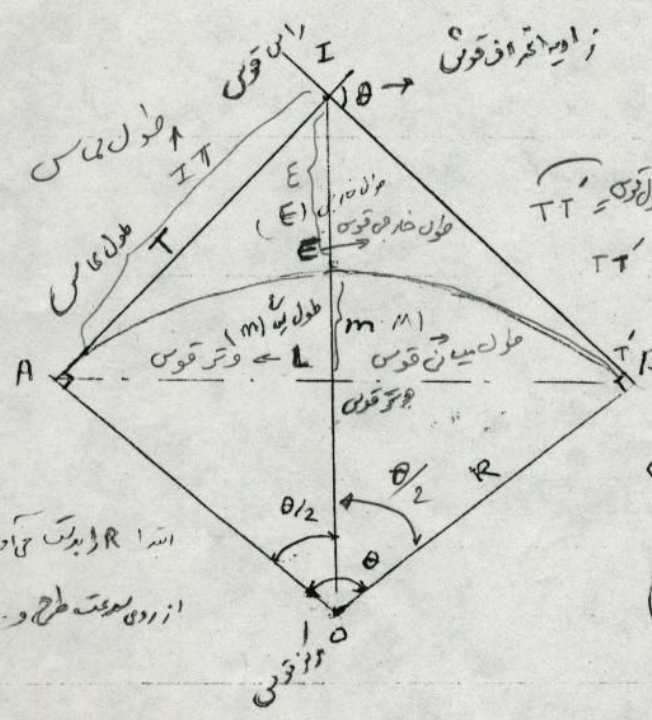 راس قوس
I
θ →
زاویه انحراف قوس
طول مماس
IT
طول مماس
T
E
طول خارجی (E)
طول خارجی قوس
E →
طول قوس = TT'
TT'
طول میانی (m)
m M
طول میانی قوس
وتر قوس ← L
وتر قوس
A
T'
B
θ/2
θ/2
R
θ
ابتدا R را بدست می‌آو
از روی سرعت طرح و
O
مرکز قوس